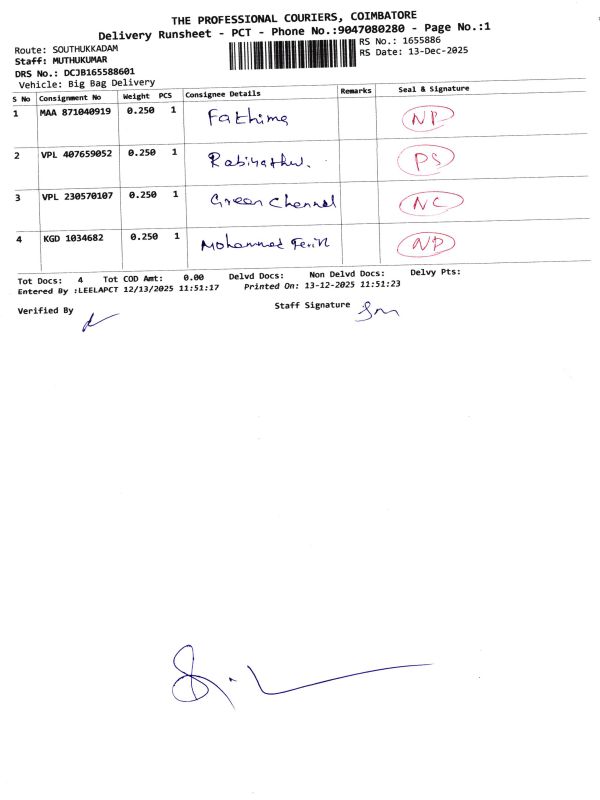 THE PROFESSIONAL COURIERS, COIMBATORE
Delivery Runsheet - PCT - Phone No.:9047080280 - Page No.:1
Route: SOUTHUKKADAM
RS No.: 1655886
Staff: MUTHUKUMAR
RS Date: 13-Dec-2025
DRS No.: DCJB165588601
Vehicle: Big Bag Delivery
S No Consignment No Weight PCS Consignee Details Remarks Seal & Signature
1 MAA 871040919 0.250 1 Fathima NP
2 VPL 407659052 0.250 1 Rabiyathul. PS
3 VPL 230570107 0.250 1 Green Channel NC
4 KGD 1034682 0.250 1 Mohammed NP
Tot Docs: 4 Tot COD Amt: 0.00 Delvd Docs: Non Delvd Docs: Delvy Pts:
Entered By :LEELAPCT 12/13/2025 11:51:17 Printed On: 13-12-2025 11:51:23
Verified By Staff Signature